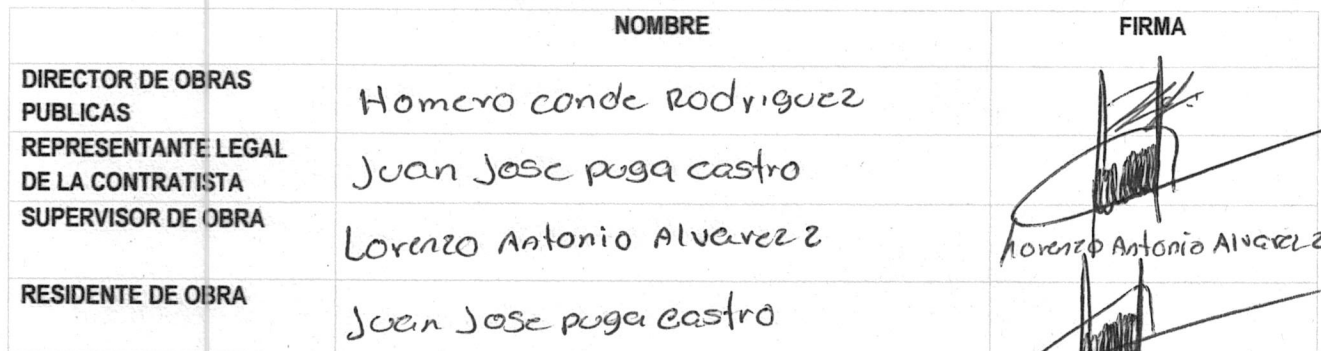 NOMBRE FIRMA
DIRECTOR DE OBRAS
PUBLICAS
Homero conde Rodriguez
REPRESENTANTE LEGAL
DE LA CONTRATISTA
Juan Jose puga castro
SUPERVISOR DE OBRA
Lorenzo Antonio Alvarez z
Lorenzo Antonio Alvarez z
RESIDENTE DE OBRA
Juan Jose puga castro